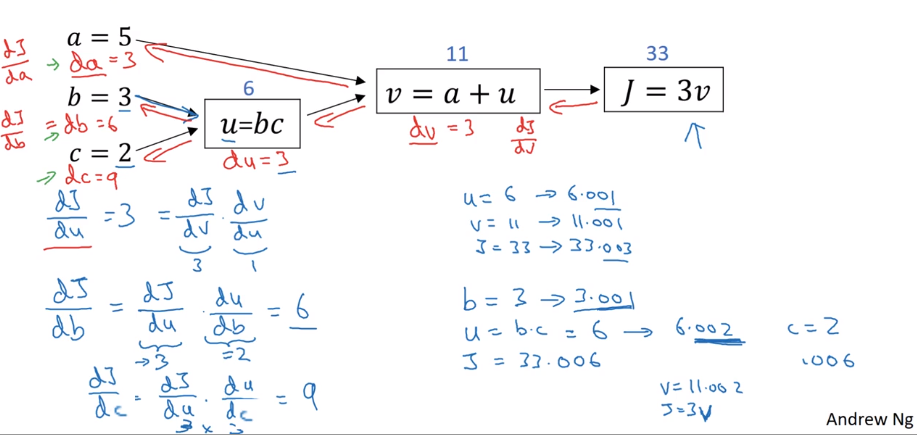 6 11 33
a = 5
dJ/da → da = 3
b = 3
dJ/db = db = 6
c = 2
→ dc = 9
u=bc
du = 3
v = a + u
dv = 3 dJ/dv
J = 3v
dJ/du = 3 = dJ/dv · dv/du
3 1
dJ/db = dJ/du · du/db = 6
→3 =2
dJ/dc = dJ/du · du/dc = 9
3 × 3
u = 6 → 6.001
v = 11 → 11.001
J = 33 → 33.003
b = 3 → 3.001
u = b·c = 6 → 6.002 c = 2
J = 33.006 .006
v = 11.002
J = 3v
Andrew Ng